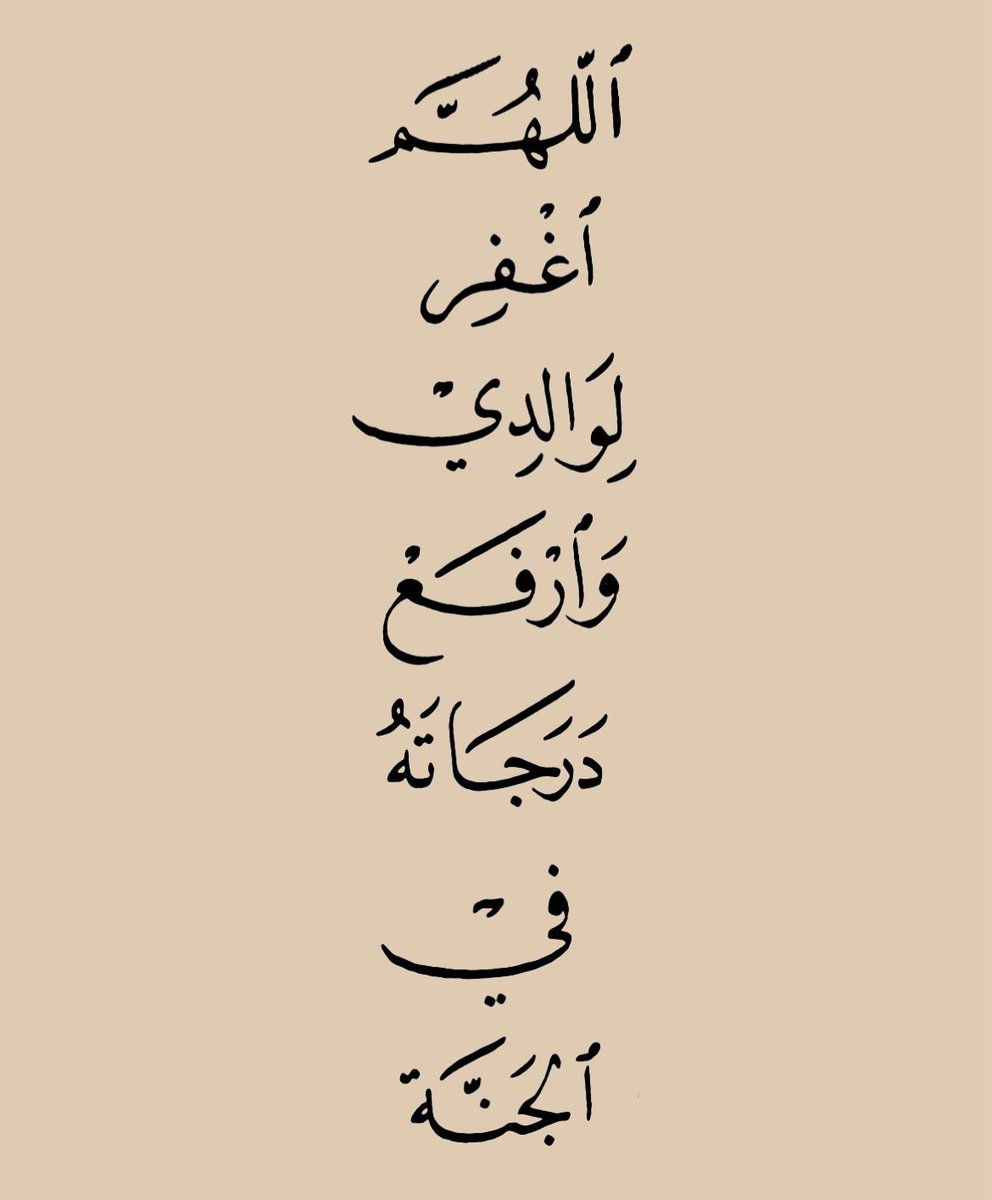 ٱللّٰهُمَّ
ٱغْفِر
لِوَالِدِيْ
وَٱرْفَعْ
دَرَجَاتَهُ
فِيْ
ٱلْجَنَّة